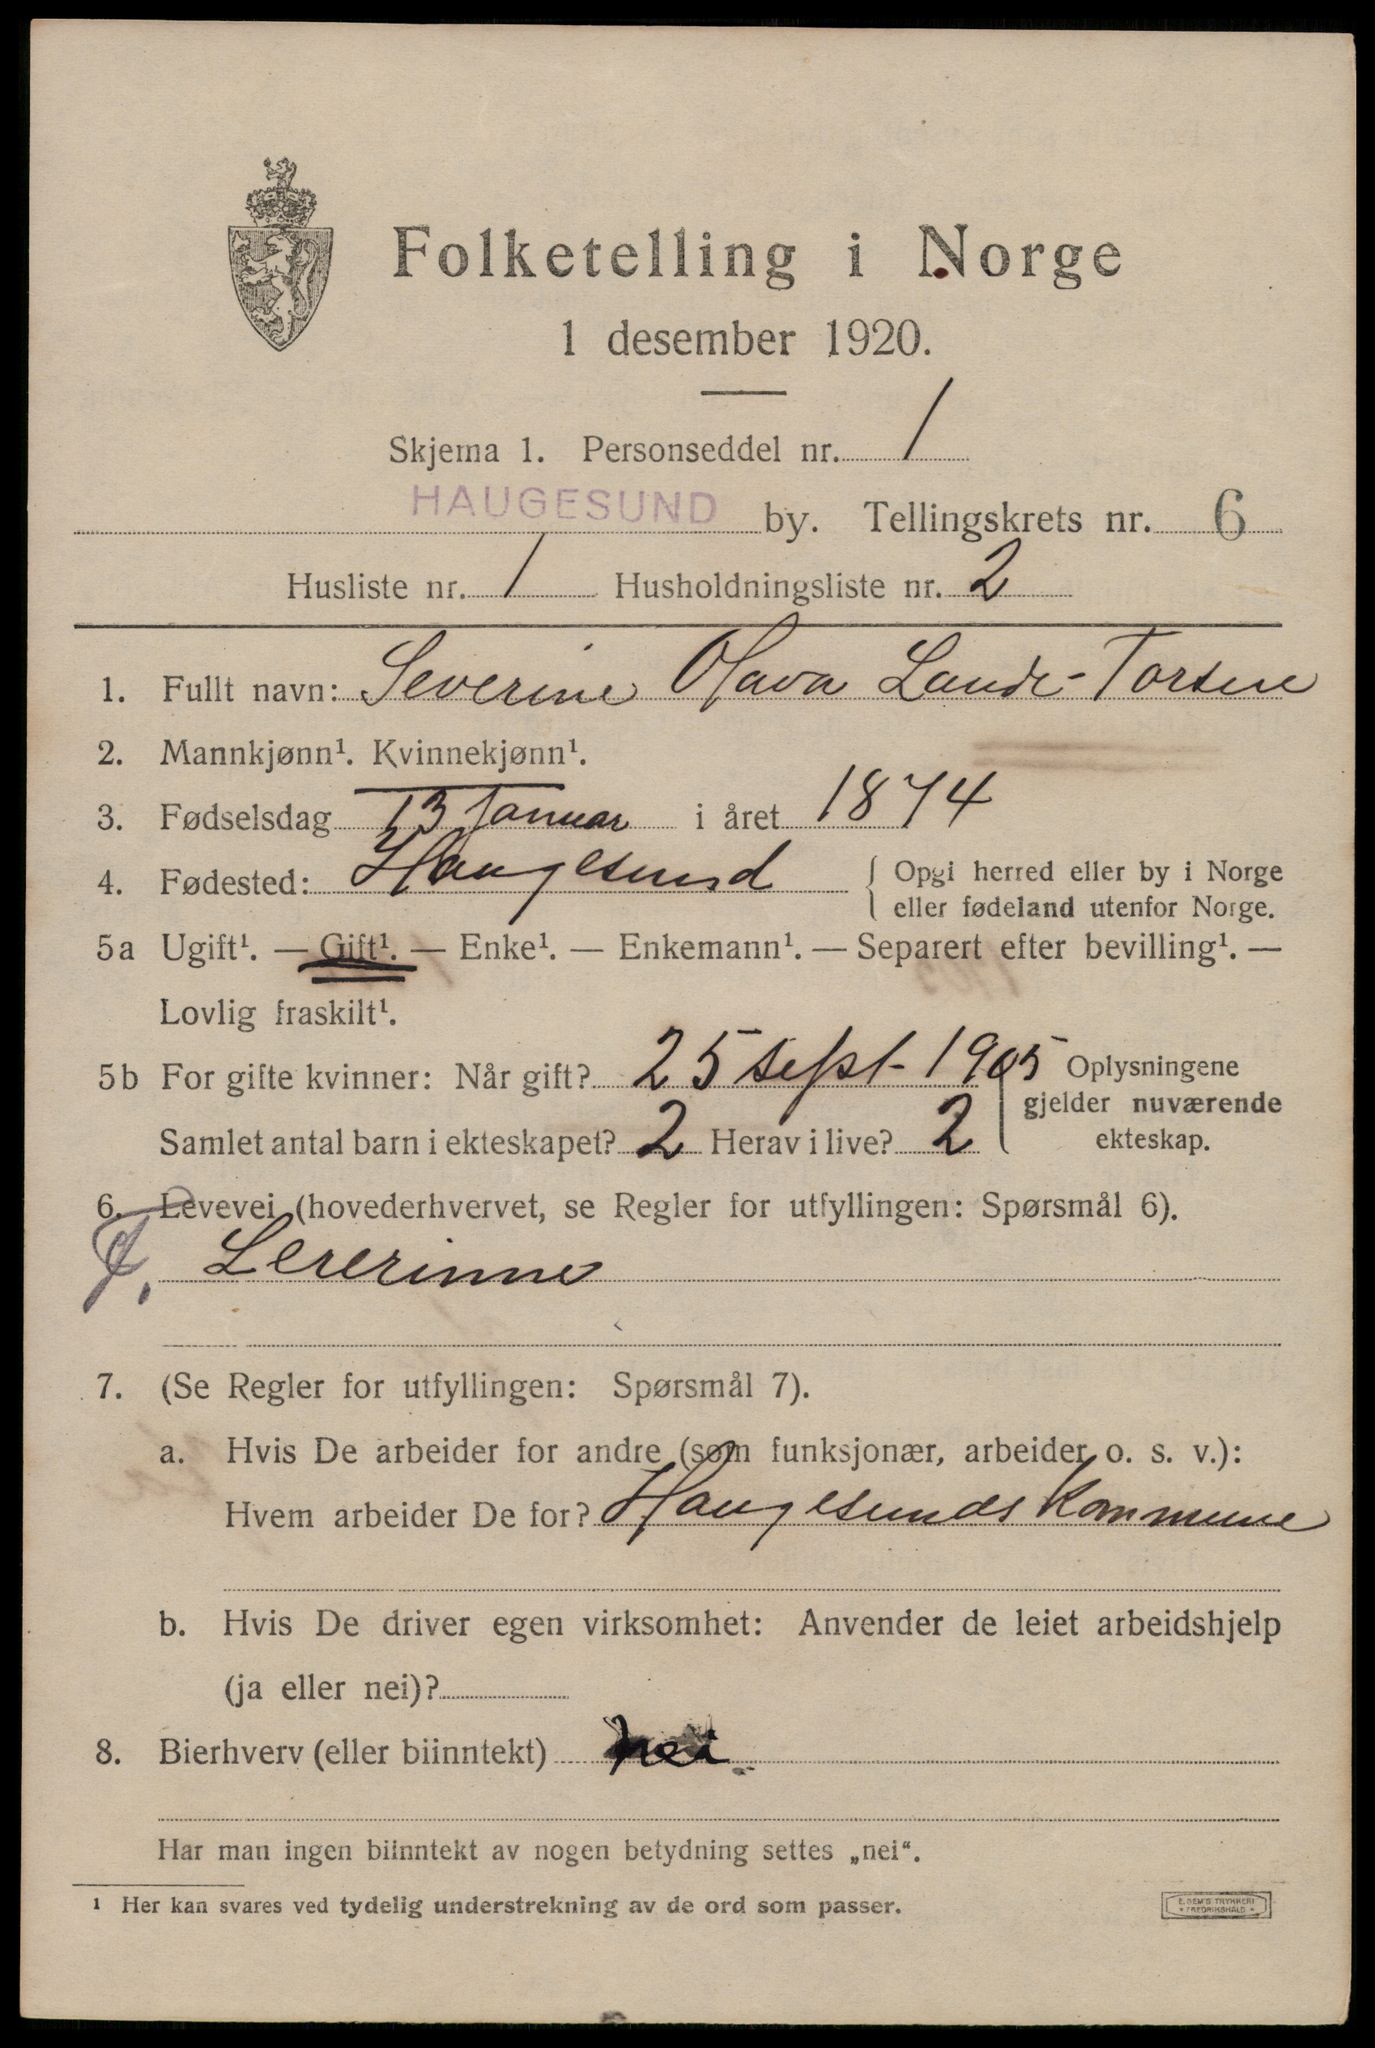 Folketelling i Norge
1 desember 1920.
Skjema 1. Personseddel nr. 1
HAUGESUND by. Tellingskrets nr. 6
Husliste nr. 1 Husholdningsliste nr. 2
1. Fullt navn: Severine Olava Lande-Torsen
2. Mannkjønn¹. Kvinnekjønn¹.
3. Fødselsdag 13 Januar i året 1874
4. Fødested: Haugesund { Opgi herred eller by i Norge
eller fødeland utenfor Norge.
5a Ugift¹. — Gift¹. — Enke¹. — Enkemann¹. — Separert efter bevilling¹. —
Lovlig fraskilt¹.
5b For gifte kvinner: Når gift? 25 sept - 1905 Oplysningene
gjelder nuværende
Samlet antal barn i ekteskapet? 2 Herav i live? 2 ekteskap.
6. Levevei (hovederhvervet, se Regler for utfyllingen: Spørsmål 6).
Lererinne
7. (Se Regler for utfyllingen: Spørsmål 7).
a. Hvis De arbeider for andre (som funksjonær, arbeider o. s. v.):
Hvem arbeider De for? Haugesunds Kommune
b. Hvis De driver egen virksomhet: Anvender de leiet arbeidshjelp
(ja eller nei)?
8. Bierhverv (eller biinntekt) nei
Har man ingen biinntekt av nogen betydning settes „nei“.
¹ Her kan svares ved tydelig understrekning av de ord som passer.
E. SEM'S TRYKKERI
* FREDRIKSHALD *